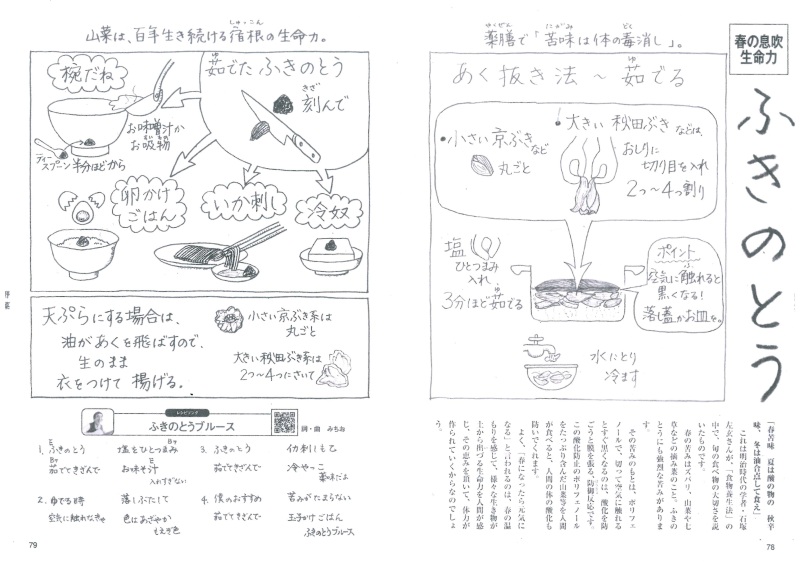 春の息吹
生命力
ふきのとう
薬膳で「苦味は体の毒消し」。
やくぜん
にがみ
どく
あく抜き法〜茹でる
ゆ
・小さい京ぶきなど
丸ごと
・大きい秋田ぶきなどは、
おしりに
切り目を入れ
2つ〜4つ割り
塩
ひとつまみ
入れ
3分ほど茹でる
ポイント
空気に触れると
黒くなる!
落し蓋かお皿を。
水にとり
冷ます
「春苦味、夏は酸の物の、秋辛
味、冬は油合点して食え」
これは明治時代の学者・石塚
左玄さんが、「食物養生法」の
中で、旬の食べ物の大切さを説
いたものです。
春の苦みはズバリ、山菜や七
草などの摘み菜のこと。ふきの
とうにも強烈な苦みがありま
す。
その苦みのもとは、ポリフェ
ノールで、切って空気に触れる
とすぐ黒くなるのは、酸化を防
ごうと膜を張る、防御反応です。
この酸化防止のポリフェノール
をたっぷり含んだ山菜等を人間
が食べると、人間の体の酸化も
防いでくれます。
よく、「春になったら元気に
なる」と言われるのは、春の温
もりを感じて、様々な生き物が
土から出づる生命力を人間が感
じ、その恵みを頂いて、体力が
作られていくからなのでしょ
う。
78
山菜は、百年生き続ける宿根の生命力。
しゅっこん
茹でたふきのとう
ゆ
刻んで
きざ
椀だね
お味噌汁か
お吸物
ティー
スプーン半分ほどから
卵かけ
ごはん
いか刺し
冷奴
天ぷらにする場合は、
油があくを飛ばすので、
生のまま
衣をつけて 揚げる。
小さい京ぶき系は
丸ごと
大きい秋田ぶき系は
2つ〜4つにさいて
レシピソング
ふきのとうブルース
詞・曲 みちお
1. ふきのとう 塩をひとつまみ
茹でてきざんで お味そ汁
入れすぎない
2. ゆでる時 落しぶたして
空気に触れなきゃ 色はあざやか
もえぎ色
3. ふきのとう イカ刺しもて
茹できざんで 冷ややっこ
薬味だよ
4. 僕のおすすめ 苦みがたまらない
茹でてきざんで 玉子かけごはん
ふきのとうブルース
79